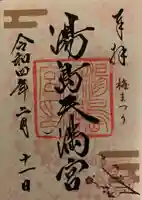 奉拝
梅まつり
湯島天満宮
令和四年二月十一日